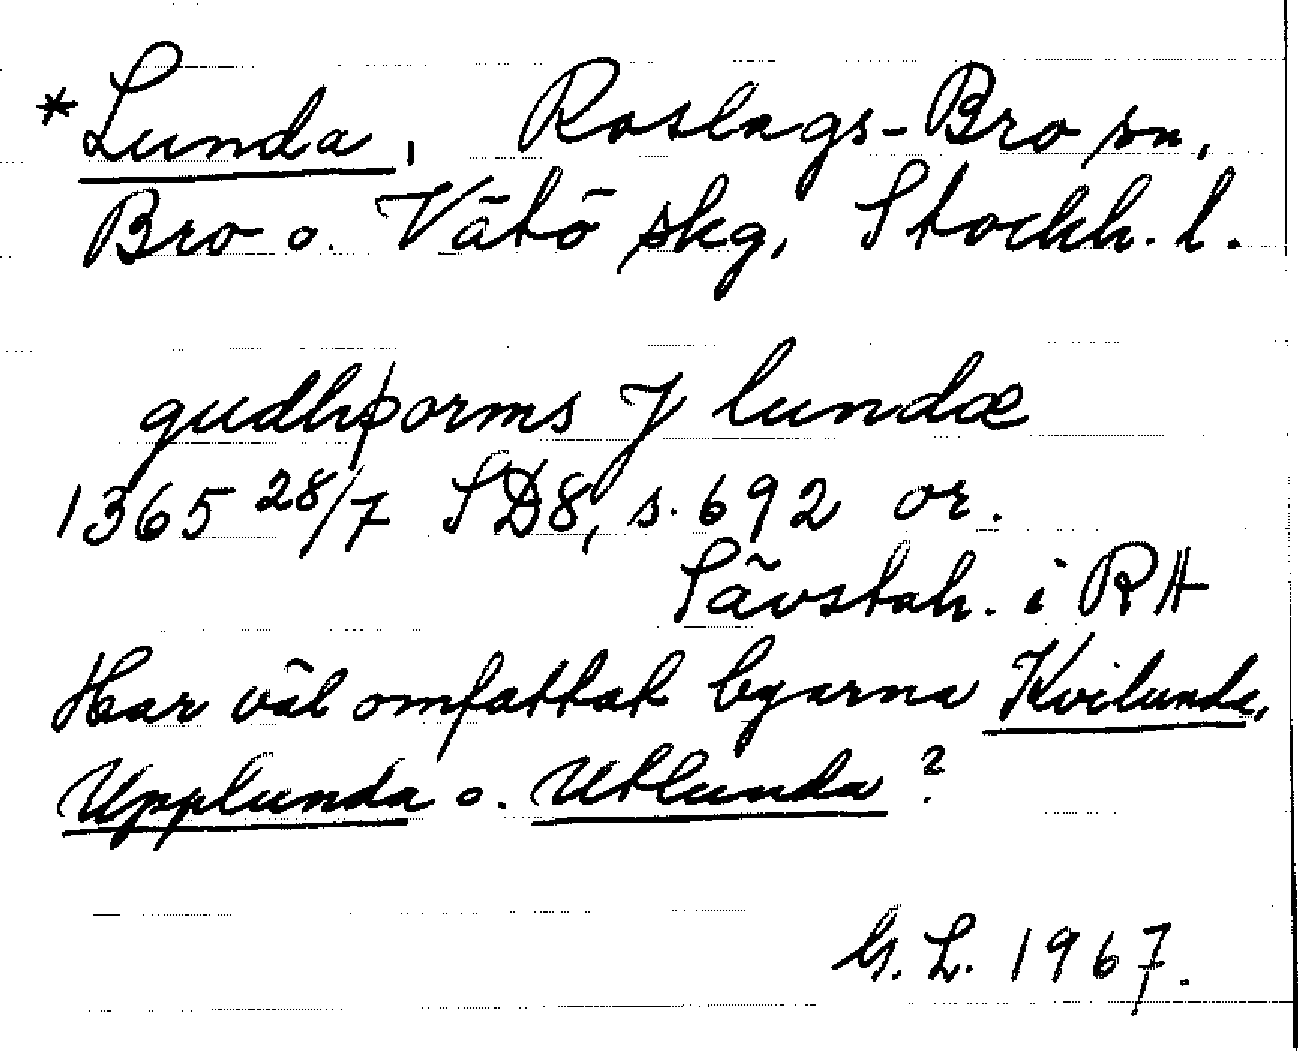 *Lunda, Roslags-Bro sn,
Bro o. Vätö skg, Stockh. l.
gudhþorms J lundæ
1365 28/7 SD8, s. 692 or.
Sävstah. i RA
Har väl omfattat byarna Kvilunda,
Upplunda o. Utlunda?
G. L. 1967.